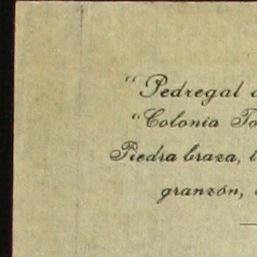 "Pedregal
"Colonia
Piedra braza,
granzón,